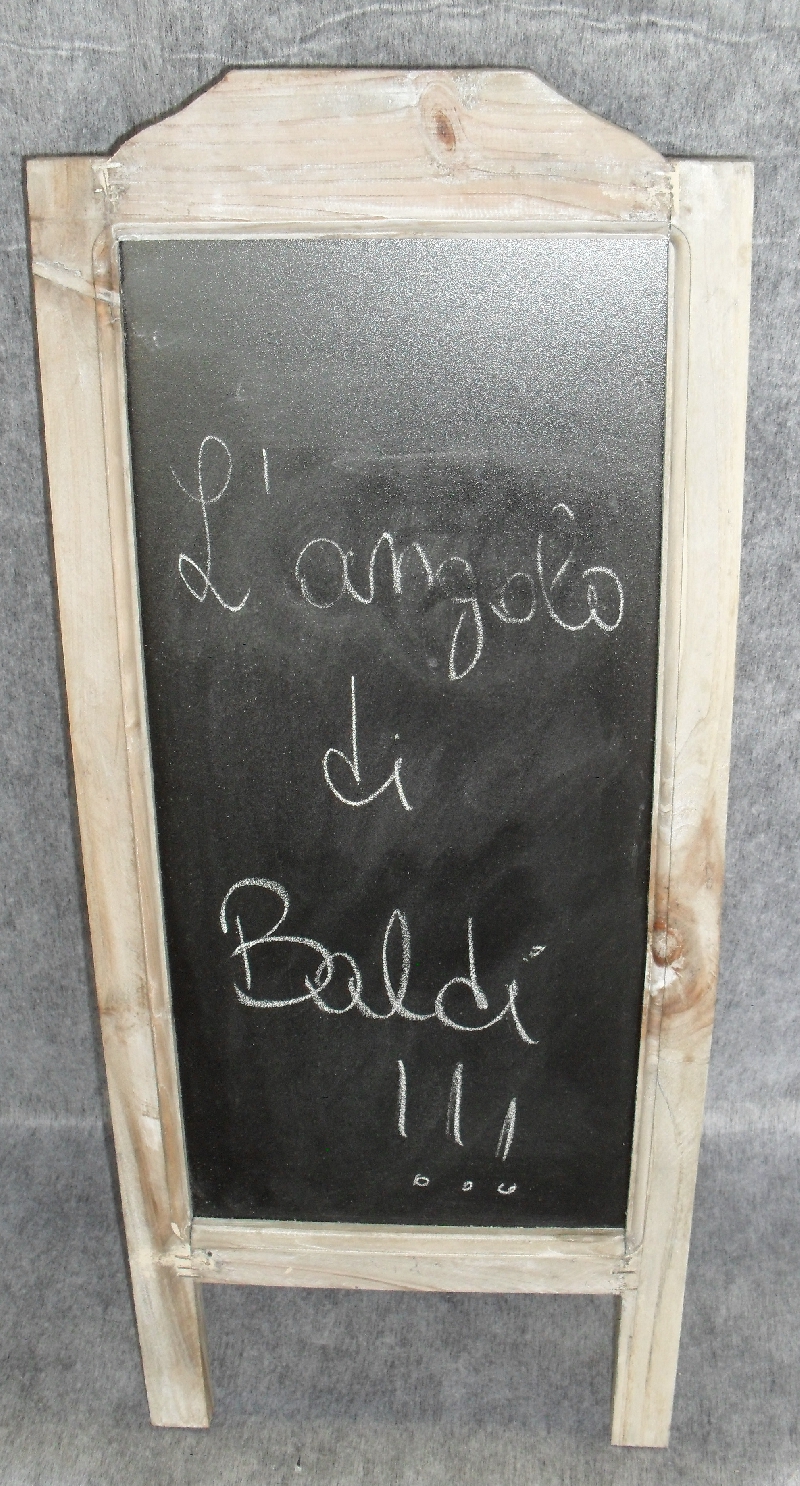 L'angolo
di
Baldi
!!!